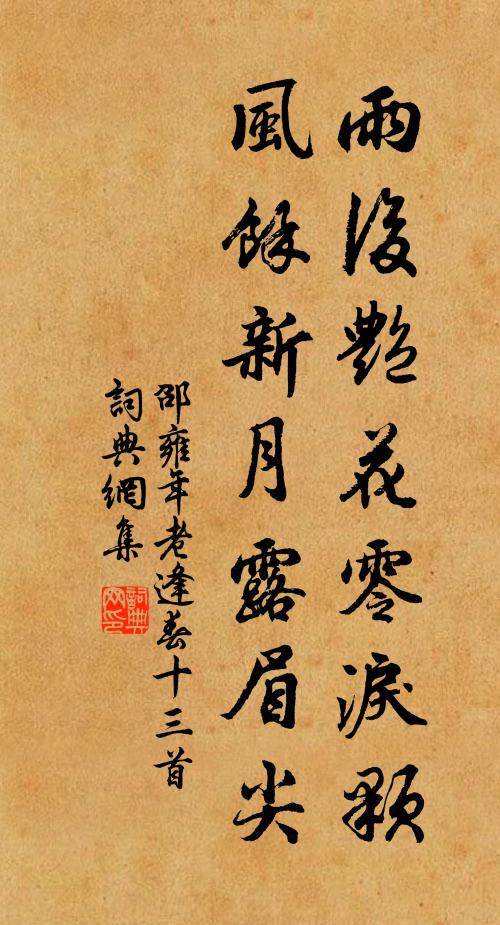 雨後艷花零淚顆
風餘新月露眉尖
邵雍年老逢春十三首
詞典網集
詞典网印